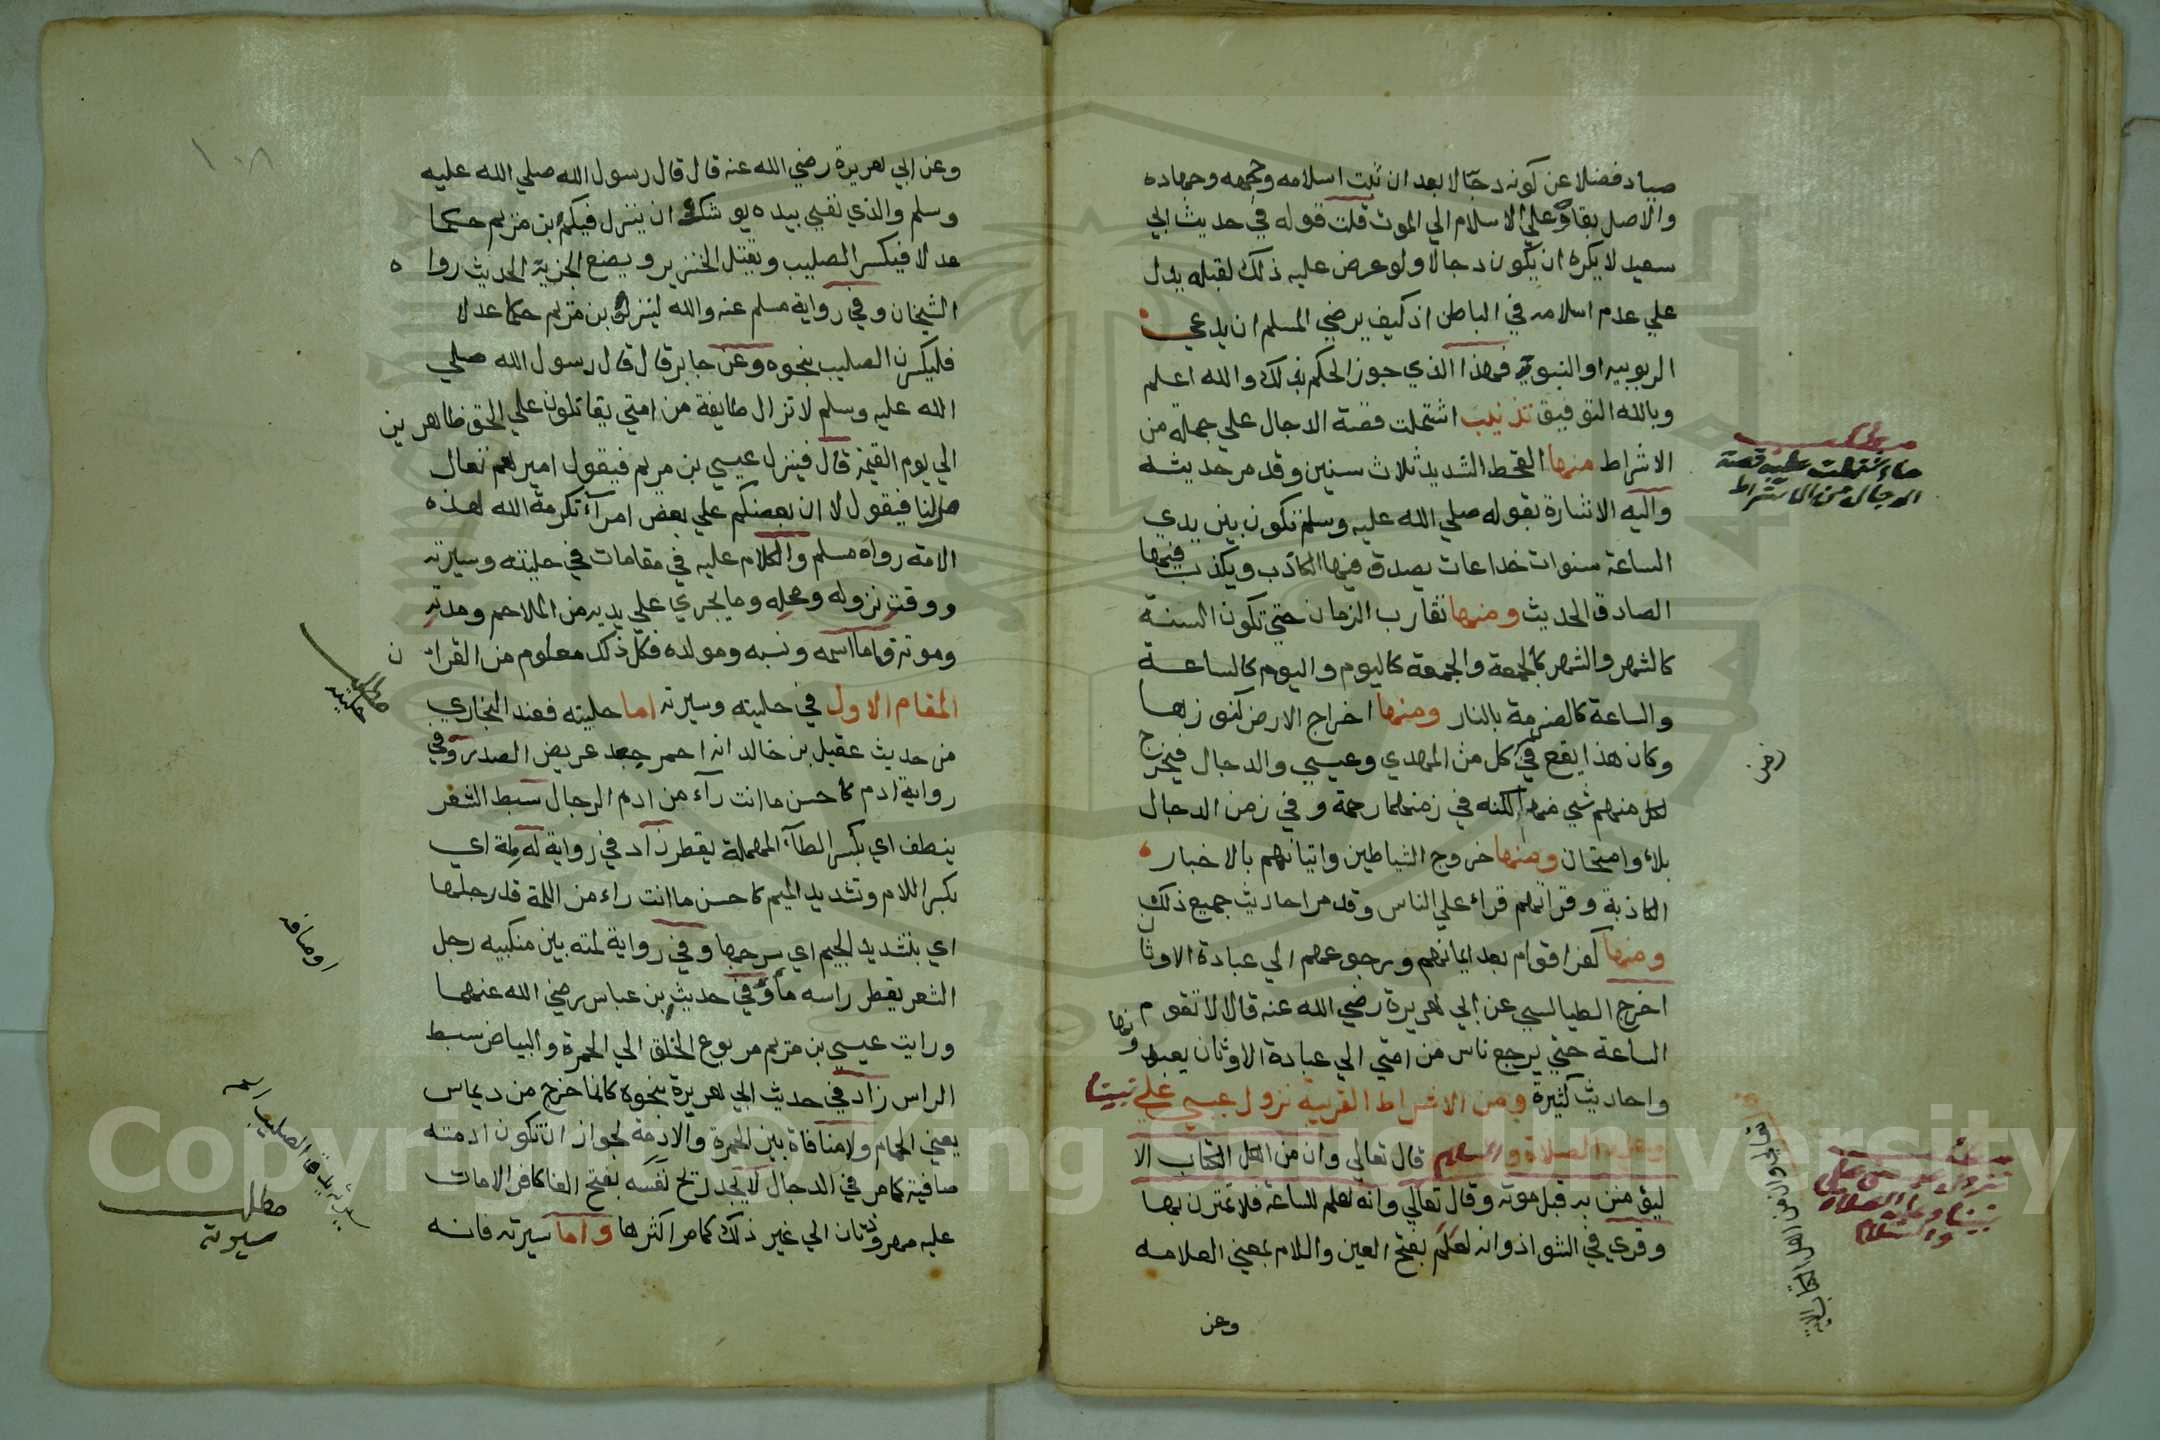 صياد فضلا عن كونه دجالا بعد ان ثبت اسلامه وحجه وجهاده
والاصل بقاؤه علي الاسلام الي الموت قلت قوله في حديث ابي
سعيد لا يكره ان يكون دجالا ولو عرض عليه ذلك لقبله يدل
علي عدم اسلامه في الباطن اذ كيف يرضي المسلم ان يدعي
الربوبيه او النبوة فهذا الذي جوز الحكم بذلك والله اعلم
وبالله التوفيق تذنيب اشتملت قصة الدجال علي جملة من
الاشراط منها القحط الشديد ثلاث سنين وقد مر حديثه
واليه الاشارة بقوله صلي الله عليه وسلم تكون بين يدي
الساعة سنوات خداعات يصدق فيها الكاذب ويكذب فيها
الصادق الحديث ومنها تقارب الزمان حتي تكون السنة
كالشهر والشهر كالجمعة والجمعة كاليوم واليوم كالساعة
والساعة كالضرمة بالنار ومنها اخراج الارض كنوزها
وكان هذا يقع في كل من المهدي وعيسي والدجال فيخرج
لكل منهم شي منها لكنه في زمنهما رحمة وفي زمن الدجال
بلاء وامتحان ومنها خروج الشياطين واتيانهم بالاخبار
الكاذبة وقراتهم قراء علي الناس وقد مر احاديث جميع ذلك
ومنها كفر اقوام بعد ايمانهم ورجوعهم الي عبادة الاوثان
اخرج الطيالسي عن ابي هريرة رضي الله عنه قال لا تقوم
الساعة حتي يرجع ناس من امتي الي عبادة الاوثان يعبدونها
واحاديث كثيرة ومن الاشراط القريبة نزول عيسي علي نبينا
وعليه الصلاة والسلام قال تعالي وان من اهل الكتاب الا
ليؤمنن به قبل موته وقال تعالي وانه لعلم للساعة فلا تمترن بها
وقري في الشواذ وانه لعلم بفتح العين واللام بمعني العلامه
وعن
مطلب
ما اشتملت عليه قصة
الدجال من الاشراط
رض
نزول عيسي علي
نبينا وعليه الصلاة
والسلام
١٠٨
وعن ابي هريرة رضي الله عنه قال قال رسول الله صلي الله عليه
وسلم والذي نفسي بيده يوشكن ان ينزل فيكم ابن مريم حكما
عدلا فيكسر الصليب ويقتل الخنزير ويضع الجزية الحديث رواه
الشيخان وفي رواية مسلم عنه والله لينزلن ابن مريم حكما عدلا
فليكسرن الصليب بنحوه وعن جابر قال قال رسول الله صلي
الله عليه وسلم لا تزال طايفة من امتي يقاتلون علي الحق ظاهرين
الي يوم القيمة قال فينزل عيسي بن مريم فيقول اميرهم تعال
صل لنا فيقول لا ان بعضكم علي بعض امرآء تكرمة الله لهذه
الامة رواه مسلم والكلام عليه في مقامات في حليته وسيرته
ووقت نزوله ومحله وما يجري علي يديه من الملاحم ومدته
وموته واما اسمه ونسبه ومولده فكل ذلك معلوم من القران
المقام الاول في حليته وسيرته اما حليته فعند البخاري
من حديث عقيل بن خالد انه احمر جعد عريض الصدر وفي
رواية ادم كاحسن ما انت رآء من ادم الرجال سبط الشعر
ينطف اي بكسر الطآء المهملة يقطر زاد في رواية له لمة اي
بكسر اللام وتشديد الميم كاحسن ما انت راء من اللمة قد رجلها
اي بتشديد الجيم اي سرحها وفي رواية لمته بين منكبيه رجل
الشعر يقطر راسه ماء وفي حديث بن عباس رضي الله عنهما
ورايت عيسي بن مريم مربوع الخلق الي الحمرة والبياض سبط
الراس زاد في حديث ابي هريرة بنحوه كانما خرج من ديماس
يعني الحمام ولا منافاة بين الحمرة والادمة لجواز ان تكون ادمته
صافية كما مر في الدجال لا يجد ريح نفسه بفتح الفا كافر الا مات
عليه مهروذتان الي غير ذلك كما مر اكثرها واما سيرته فانه
مطلب
حليته
اوصافه
مطلب
سيرته